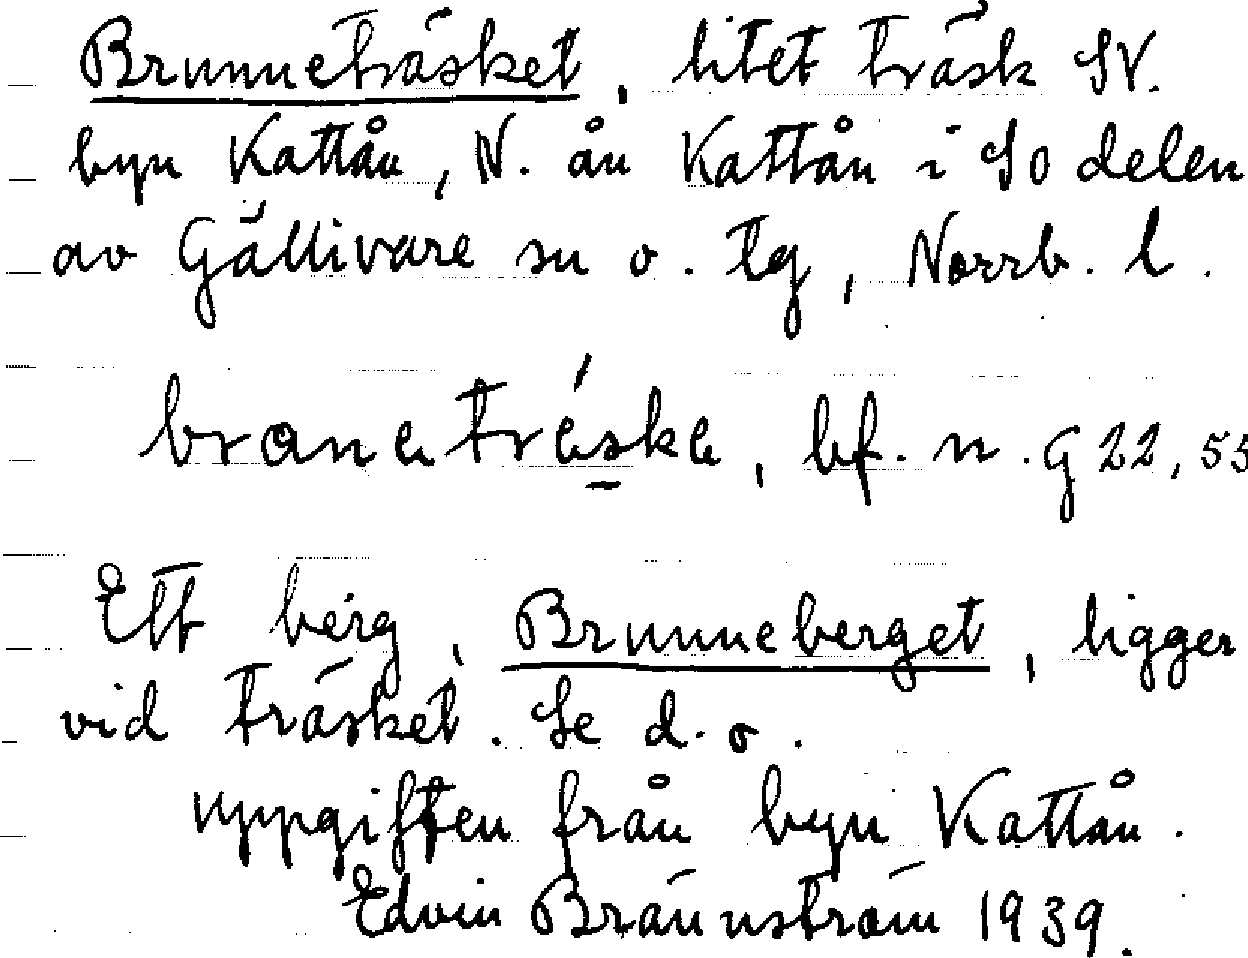 Brunneträsket, litet träsk SV.
byn Kattån, N. ån Kattån i SO delen
av Gällivare sn o. tg, Norrb. l.
branetréske, bf. n. G 22, 55
Ett berg, Brunneberget, ligger
vid träsket. Se d. o.
uppgiften från byn Kattån.
Edvin Brännström 1939.